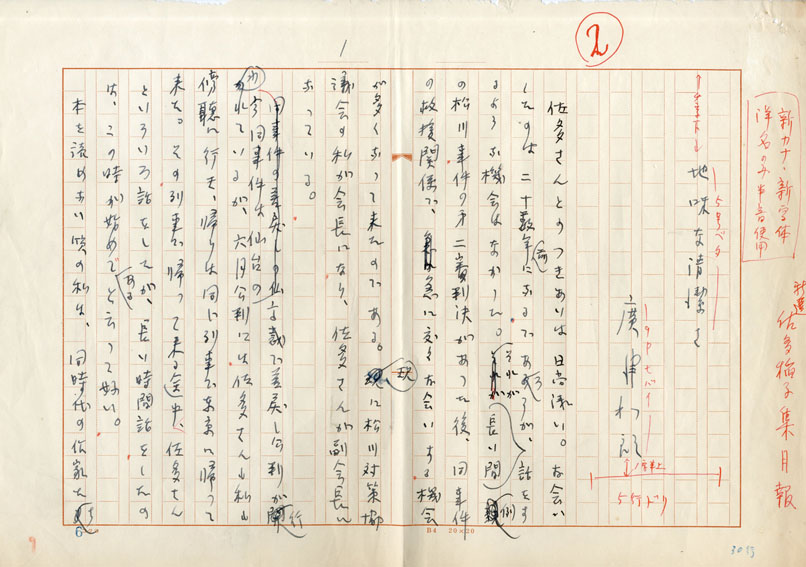 新カナ・新字体
洋名のみ中音使用
新選 佐多稲子集月報
2
1
地味な清潔さ
廣津和郎
5行ドリ
佐多さんとのつきあいは日尚浅い。お会い
したのは二十数年前にあるであろうが、話をす
るような機会はなかった。それが長い間
の松川事件の第二審判決があった後、同事件
の救援関係で、急に交々お会いする機会
が多くなって来たのである。現に松川対策協
議会の私が会長になり、佐多さんが副会長に
なっている。
同事件の差戻しの仙高裁で差戻し公判が行
われているが、六月公判には佐多さんも私も
傍聴に行き、帰りは同じ列車で東京に帰って
来た。その列車で帰って来る途中、佐多さん
といろいろ話をしたが、長い時間話をしたの
は、この時が始めてと言って好い。
本を読めない性の私は、同時代の作家た
B4 20×20
3055
9